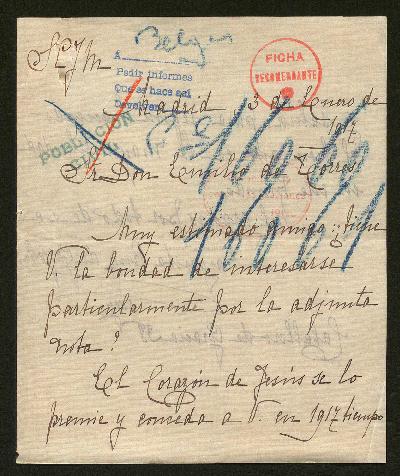 A Belgica
Pedir informes
Que se hace así
Devolver
FICHA
RECOMENDANTE
POBLACION
CIVIL
Madrid 3 de Enero de
1917
Sr. Don Emilio de Torres
Muy estimado amigo: ¿tiene
V. la bondad de interesarse
particularmente por la adjunta
nota?
El Corazón de Jesús se lo
premie y conceda a V. en 1917 tiempo